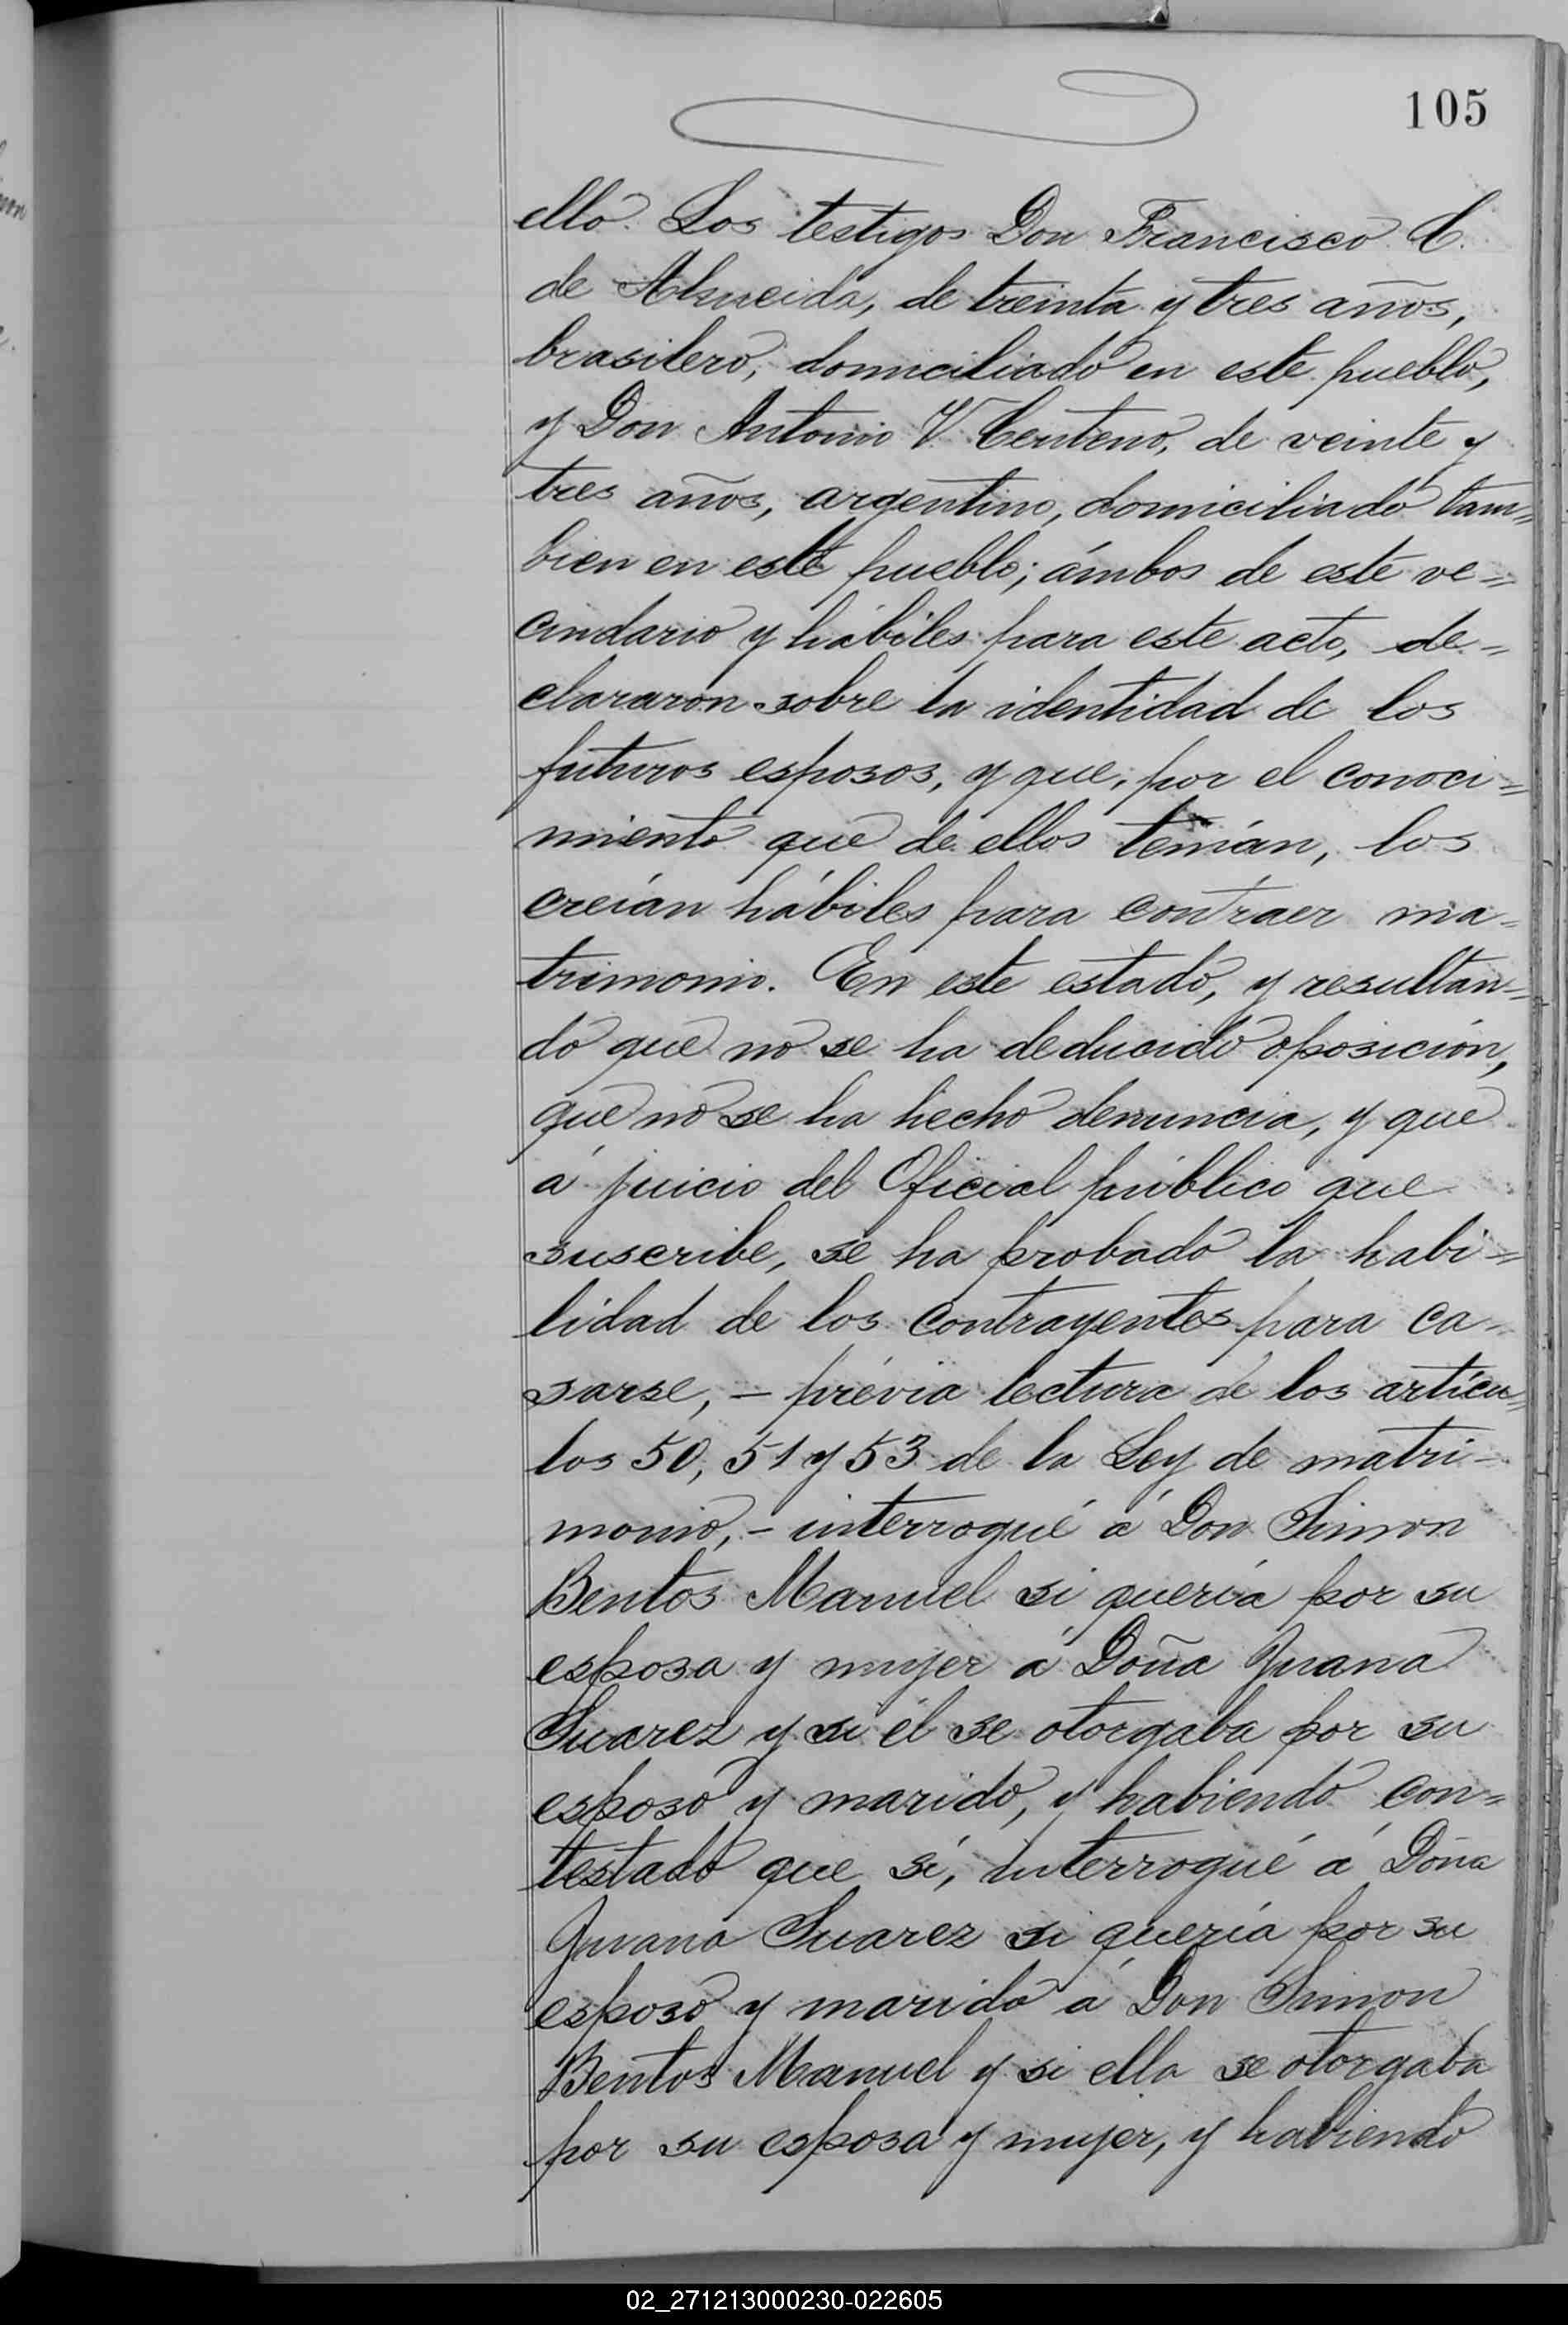 105
ello. Los testigos Don Francisco C.
de Almeida, de treinta y tres años,
brasilero, domiciliado en este pueblo,
y Don Antonio V. Centeno, de veinte y
tres años, argentino, domiciliado tam=
bien en este pueblo; ámbos de este ve=
cindario y hábiles para este acto, de=
clararon sobre la identidad de los
futuros esposos, y que, por el conoci=
miento que de ellos tenían, los
creían hábiles para contraer ma=
trimonio. En este estado, y resultan=
do que no se ha deducido oposición,
que no se ha hecho denuncia, y que
á juicio del Oficial público que
suscribe, se ha probado la habi=
lidad de los contrayentes para ca=
sarse, – prévia lectura de los artícu=
los 50, 51 y 53 de la Ley de matri=
monio, – interrogué á Don Simon
Bentos Manuel si quería por su
esposa y mujer á Doña Juana
Suarez y si él se otorgaba por su
esposo y marido, y habiendo con=
testado que sí, interrogué á Doña
Juana Suarez si quería por su
esposo y marido á Don Simon
Bentos Manuel y si ella se otorgaba
por su esposa y mujer, y habiendo
02_271213000230-022605